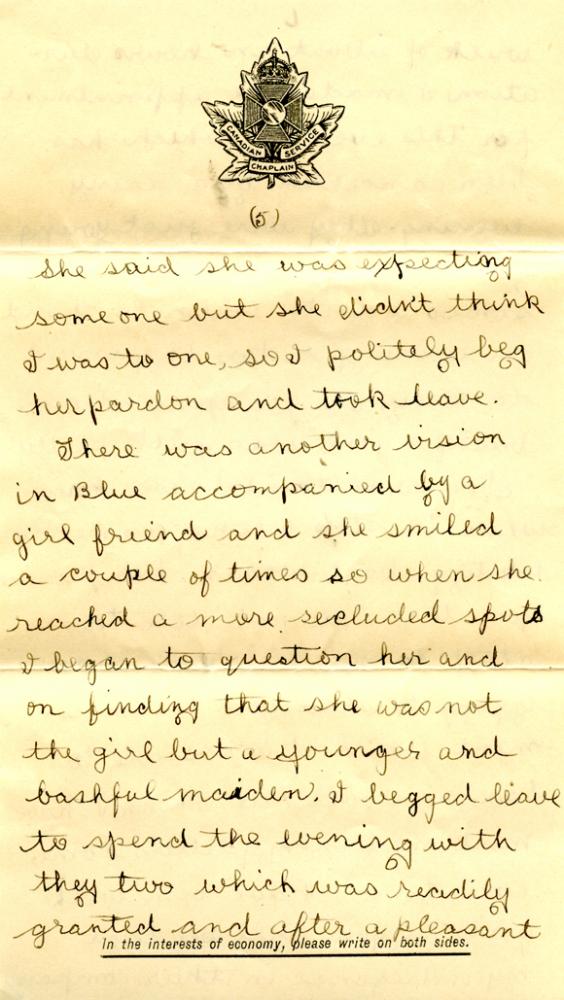 CANADIAN SERVICE
CHAPLAIN
(5)
She said she was expecting
someone but she didn't think
I was to one, so I politely beg
her pardon and took leave.
There was another vision
in Blue accompanied by a
girl friend and she smiled
a couple of times so when she
reached a more secluded spots
I began to question her and
on finding that she was not
the girl but a younger and
bashful maiden. I begged leave
to spend the evening with
they two which was readily
granted and after a pleasant
In the interests of economy, please write on both sides.